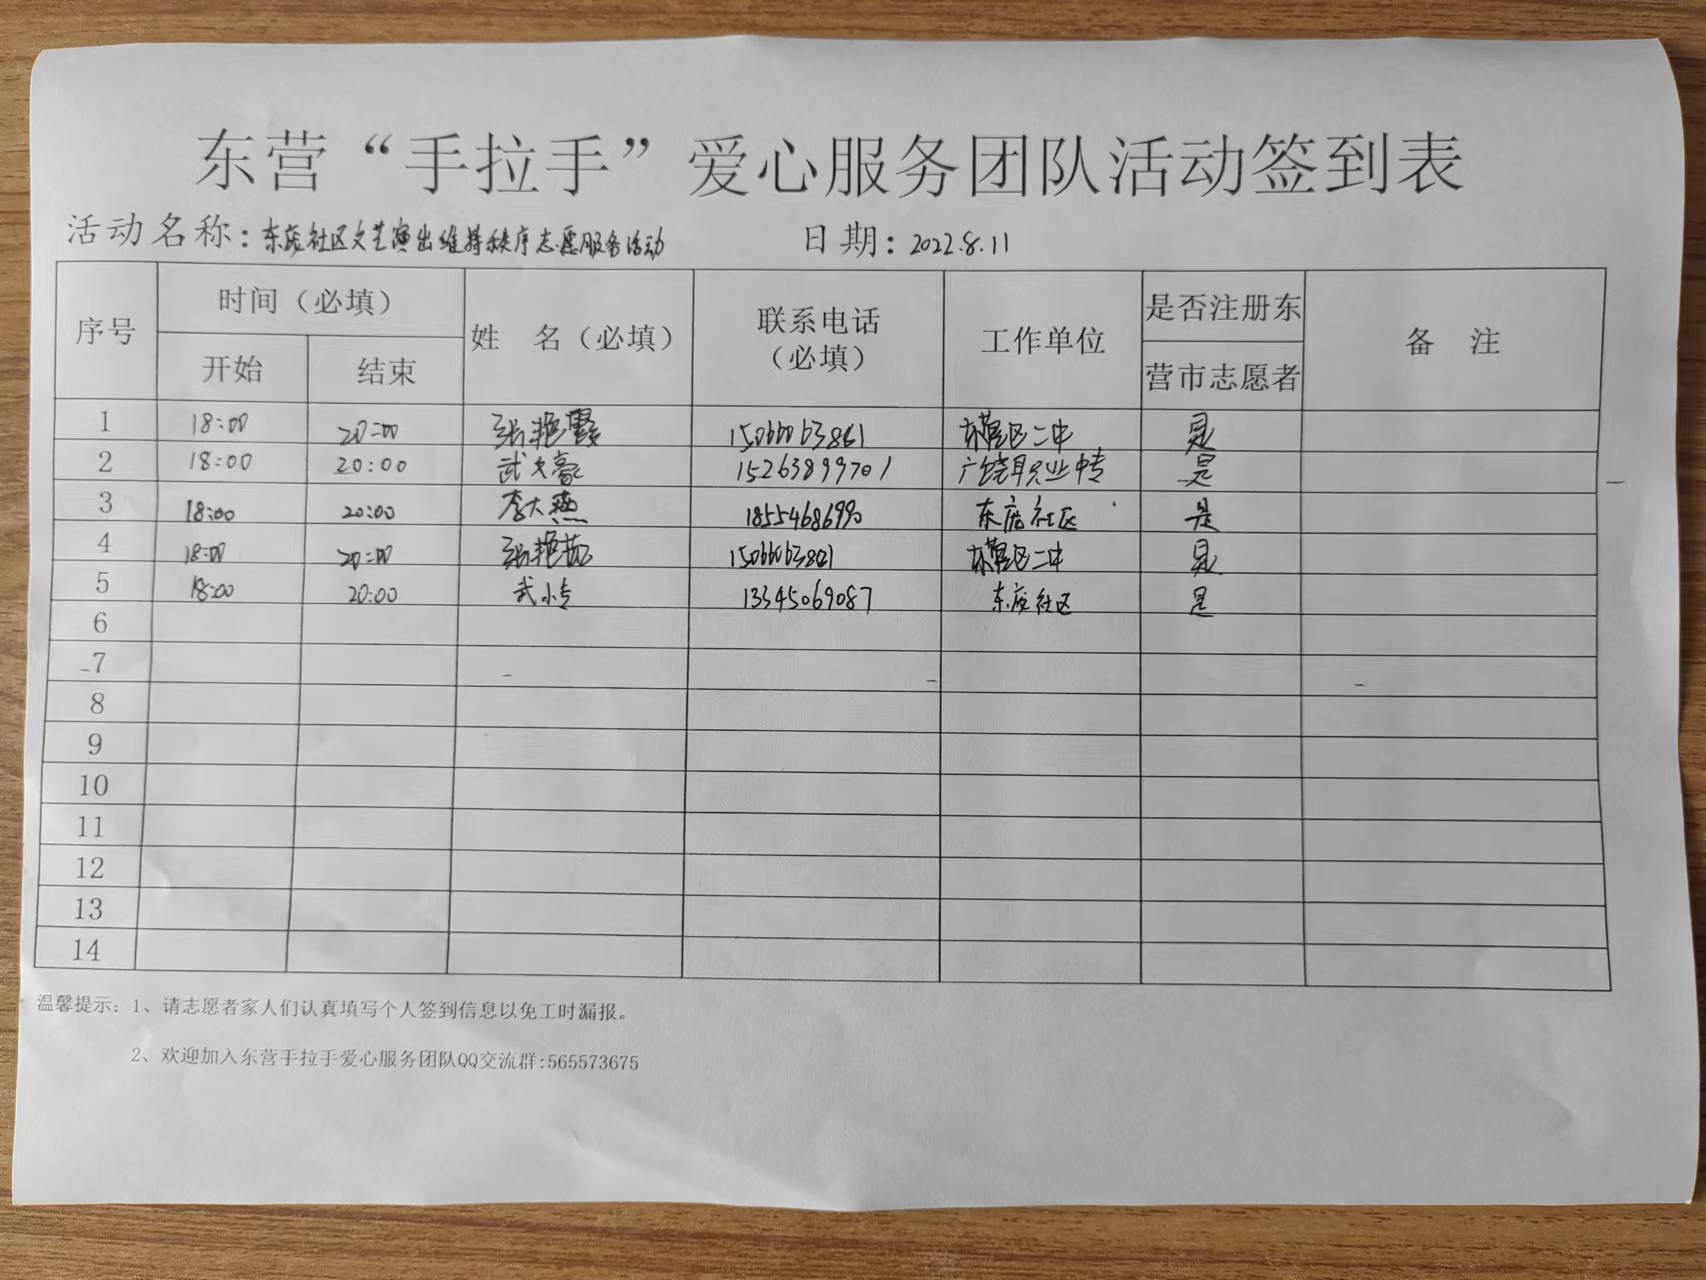 东营“手拉手”爱心服务团队活动签到表
活动名称：东庞社区文艺演出维持秩序志愿服务活动 日期：2022.8.11
序号 时间（必填） 姓 名（必填） 联系电话（必填） 工作单位 是否注册东营市志愿者 备 注
开始 结束
1 18:00 20:00 张艳霞 15066063861 东营区二中 是
2 18:00 20:00 武文豪 15263899701 广饶县职业中专 是
3 18:00 20:00 李大燕 18554686990 东庞社区 是
4 18:00 20:00 张艳茹 东营区二中 是
5 18:00 20:00 武小专 13345069087 东庞社区 是
6
7
8
9
10
11
12
13
14
温馨提示：1、请志愿者家人们认真填写个人签到信息以免工时漏报。
2、欢迎加入东营手拉手爱心服务团队QQ交流群:565573675